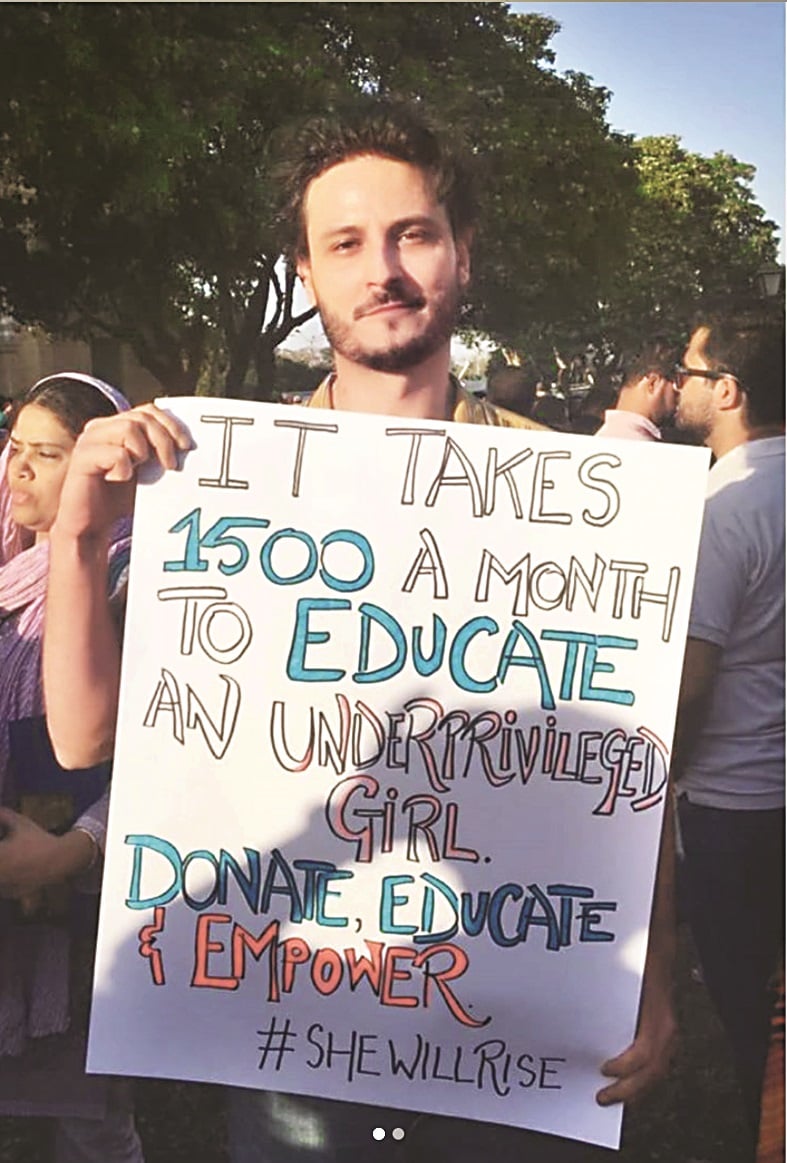 IT TAKES
1500 A MONTH
TO EDUCATE
AN UNDERPRIVILEGED
GIRL.
DONATE, EDUCATE
& EMPOWER.
#SHEWILLRISE